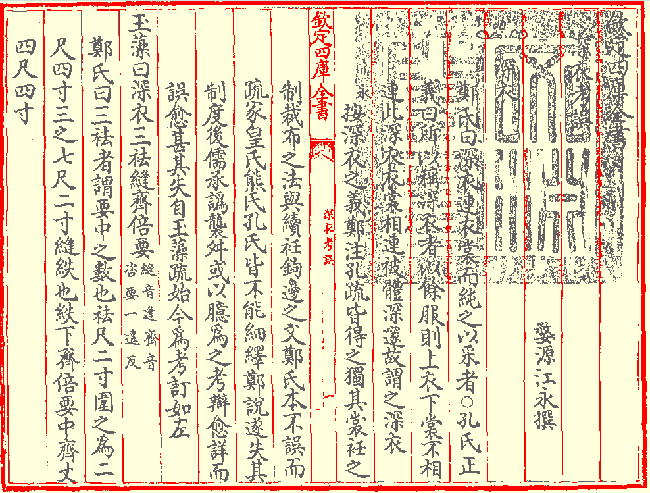 欽定四庫全書
深衣考誤
婺源江永撰
深衣
鄭氏曰深衣連衣裳而純之以采者○孔氏正
義曰所以稱深衣者以餘服則上衣下裳不相
連此深衣衣裳相連被體深邃故謂之深衣
按深衣之義鄭注孔疏皆得之獨其裳衽之
欽定四庫全書
深衣考誤
一
制裁布之法與續衽鉤邊之文鄭氏本不誤而
疏家皇氏熊氏孔氏皆不能細繹鄭說遂失其
制度後儒承譌襲舛或以臆為之考辯愈詳而
誤愈甚其失自玉藻疏始今為考訂如左
玉藻曰深衣三袪縫齊倍要縫音逢齊音咨要一遥反
鄭氏曰三袪者謂要中之數也袪尺二寸圍之為二
尺四寸三之七尺二寸縫紩也紩下齊倍要中齊丈
四尺四寸